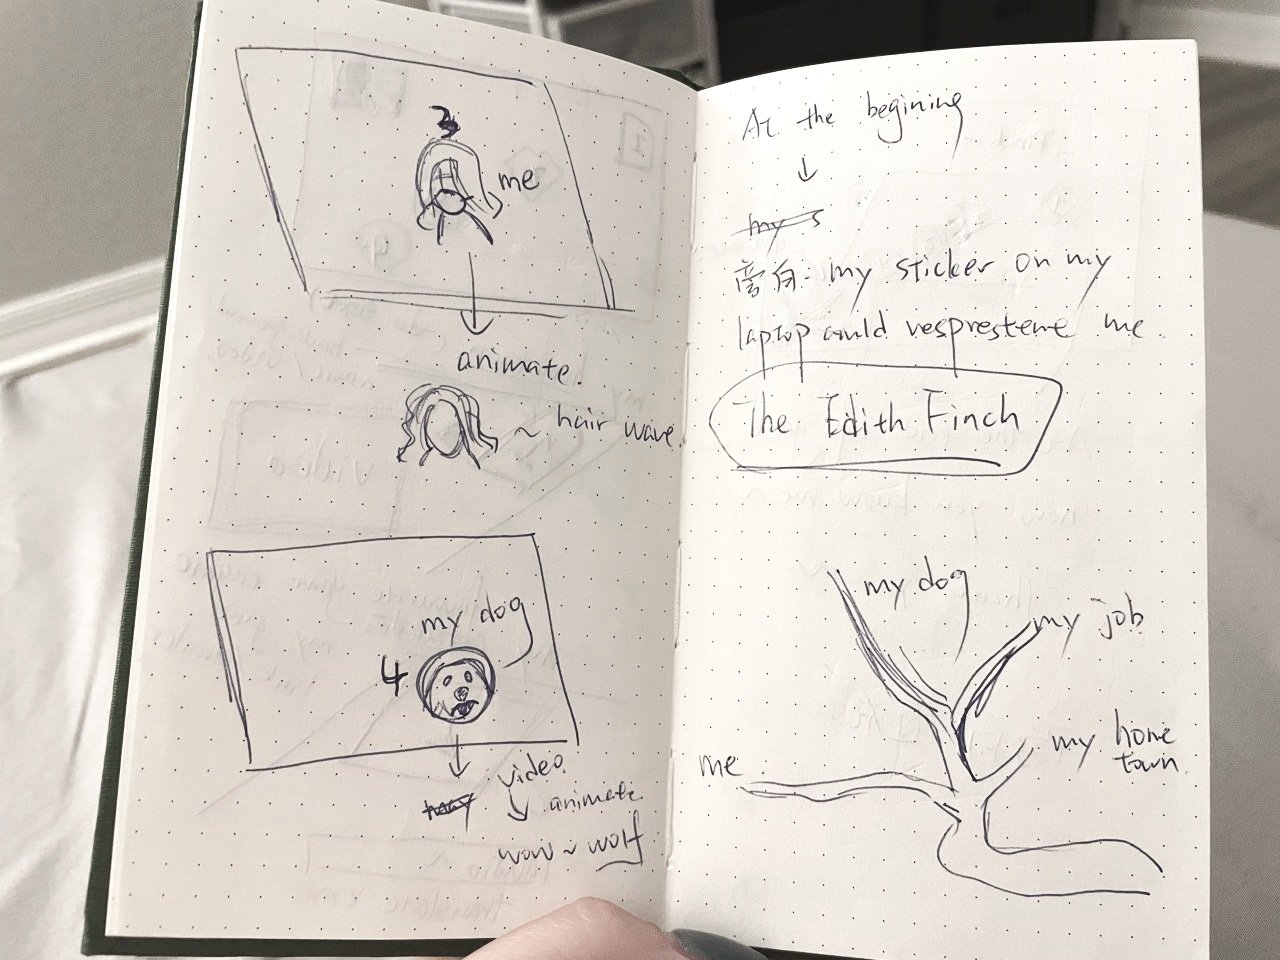 3
me
animate.
~ hair wave.
my dog
4
video
animate
wow ~ wolf
At the begining
my s
旁白: my sticker on my
laptop could resprestent me.
The Edith Finch
my dog
my job
my home
town
me